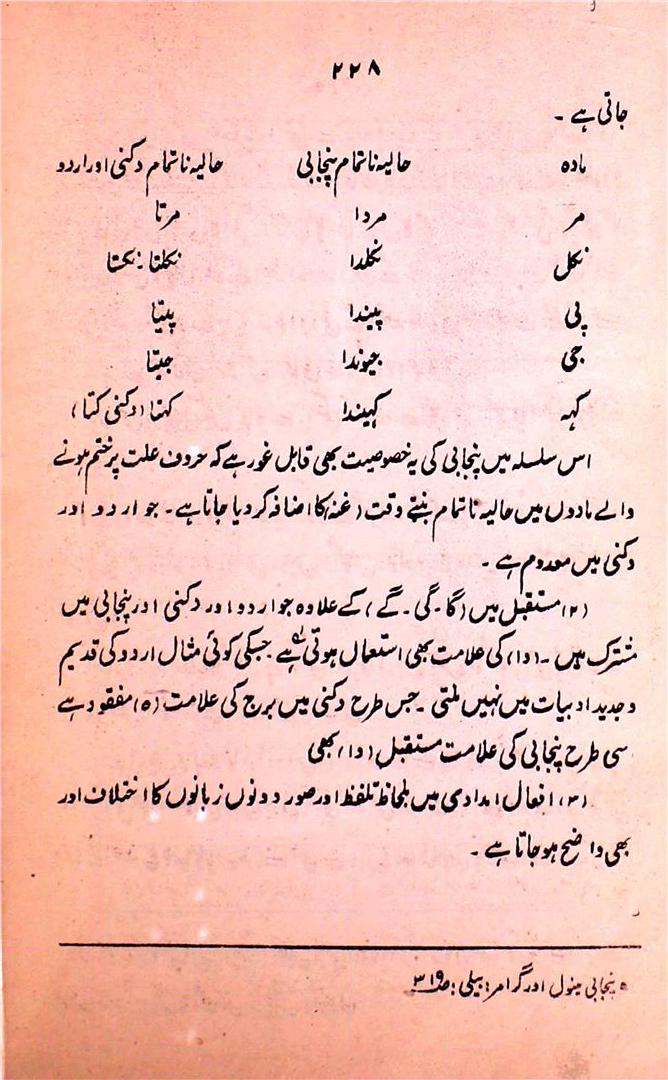 ۲۲۸
جاتی ہے ۔
مادہ حالیہ ناتمام پنجابی حالیہ ناتمام دکنی اور اردو
مر مردا مرتا
نکل نکلدا نکلتا : نکستا
پی پیندا پیتا
جی جیوندا جیتا
کہہ کہیندا کہتا (دکنی کتا)
اس سلسلہ میں پنجابی کی یہ خصوصیت بھی قابل غور ہے کہ حروف علت پر ختم ہونے
والے مادوں میں حالیہ ناتمام بنتے وقت (غنہ) کا اضافہ کر دیا جاتا ہے ۔ جو اردو اور
دکنی میں معدوم ہے ۔
(۲) مستقبل میں (گا ۔ گی ۔ گے) کے علاوہ جو اردو اور دکنی اور پنجابی میں
مشترک ہیں ۔ (دا) کی علامت بھی استعمال ہوتی ہے جسکی کوئی مثال اردو کی قدیم
و جدید ادبیات میں نہیں ملتی ۔ جس طرح دکنی میں برج کی علامت (ہ) مفقود ہے
اسی طرح پنجابی کی علامت مستقبل (دا) بھی
(۳) افعال امدادی میں بلحاظ تلفظ اور صور دونوں زبانوں کا اختلاف اور
بھی واضح ہو جاتا ہے ۔
ہ پنجابی مینول اور گرامر : بیلی : ص ۳۱۹